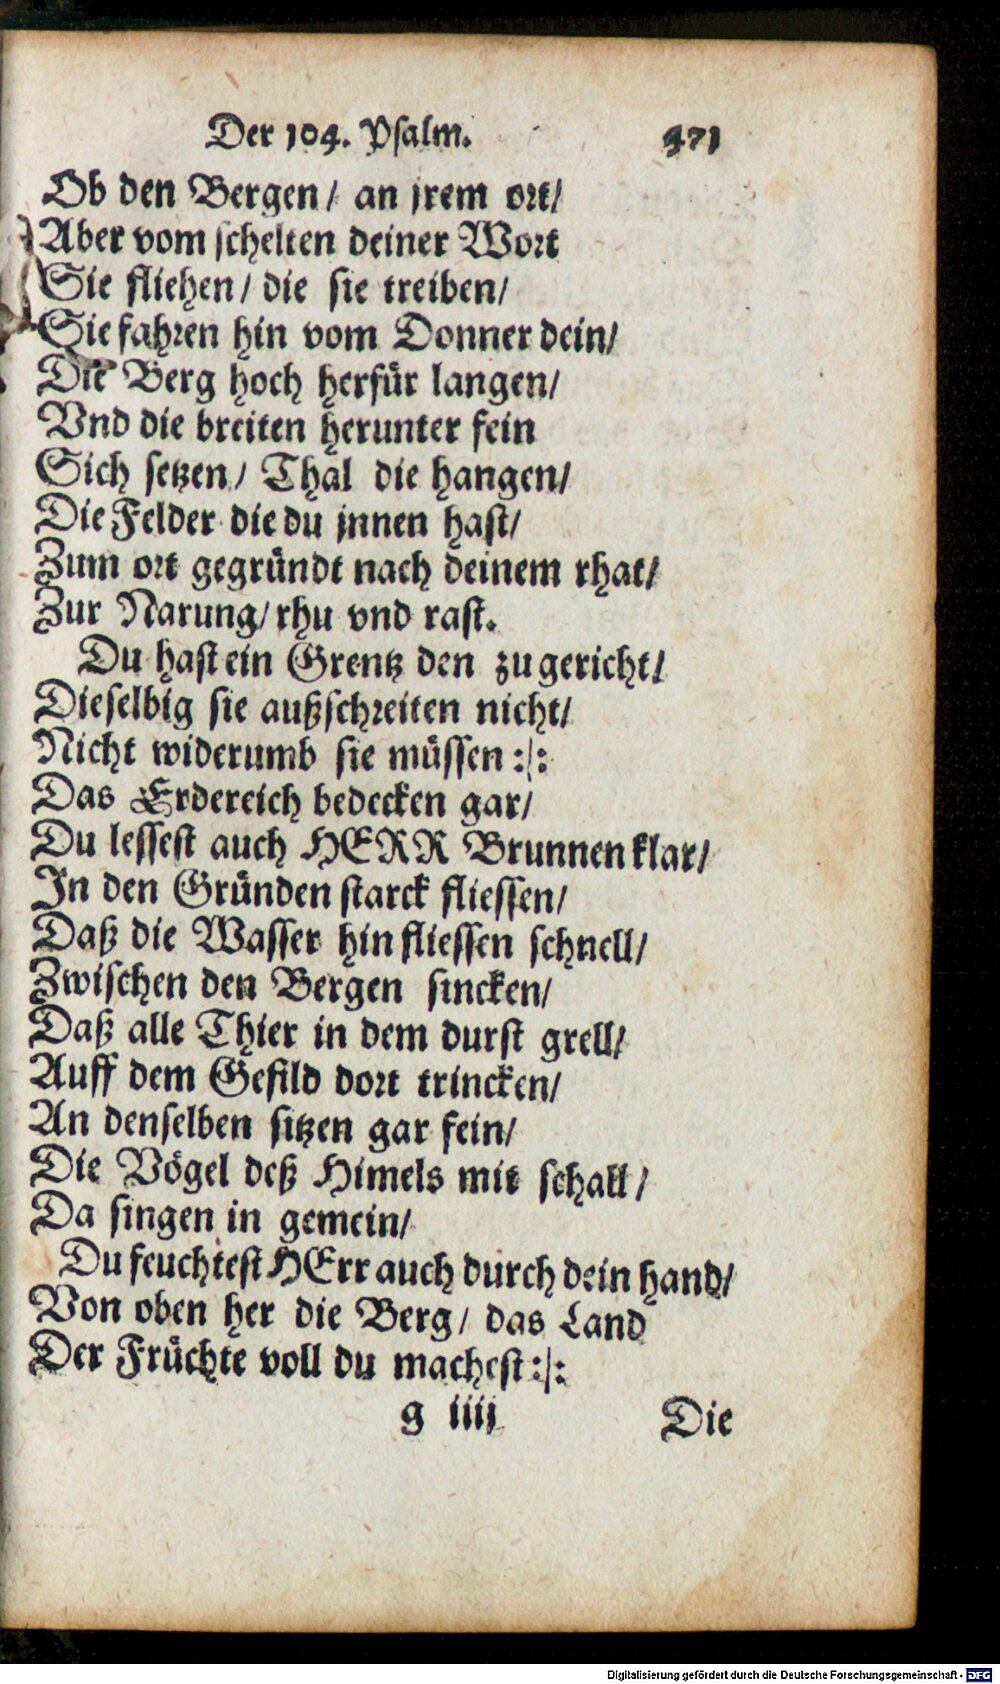 Der 104. Psalm. 471
Ob den Bergen/ an jrem ort/
Aber vom schelten deiner Wort
Sie fliehen/ die sie treiben/
Sie fahren hin vom Donner dein/
Die Berg hoch herfür langen/
Vnd die breiten herunter fein
Sich setzen/ Thal die hangen/
Die Felder die du jnnen hast/
Zum ort gegründt nach deinem rhat/
Zur Narung/ rhu vnd rast.
Du hast ein Grentz den zugericht/
Dieselbig sie außschreiten nicht/
Nicht widerumb sie müssen :/:
Das Erdereich bedecken gar/
Du lessest auch HERR Brunnen klar/
In den Gründen starck fliessen/
Daß die Wasser hin fliessen schnell/
Zwischen den Bergen sincken/
Daß alle Thier in dem durst grell/
Auff dem Gefild dort trincken/
An denselben sitzen gar fein/
Die Vögel deß Himels mit schall/
Da singen in gemein/
Du feuchtest HErr auch durch dein hand/
Von oben her die Berg/ das Land
Der Früchte voll du machest :/:
g iiij Die
Digitalisierung gefördert durch die Deutsche Forschungsgemeinschaft - DFG